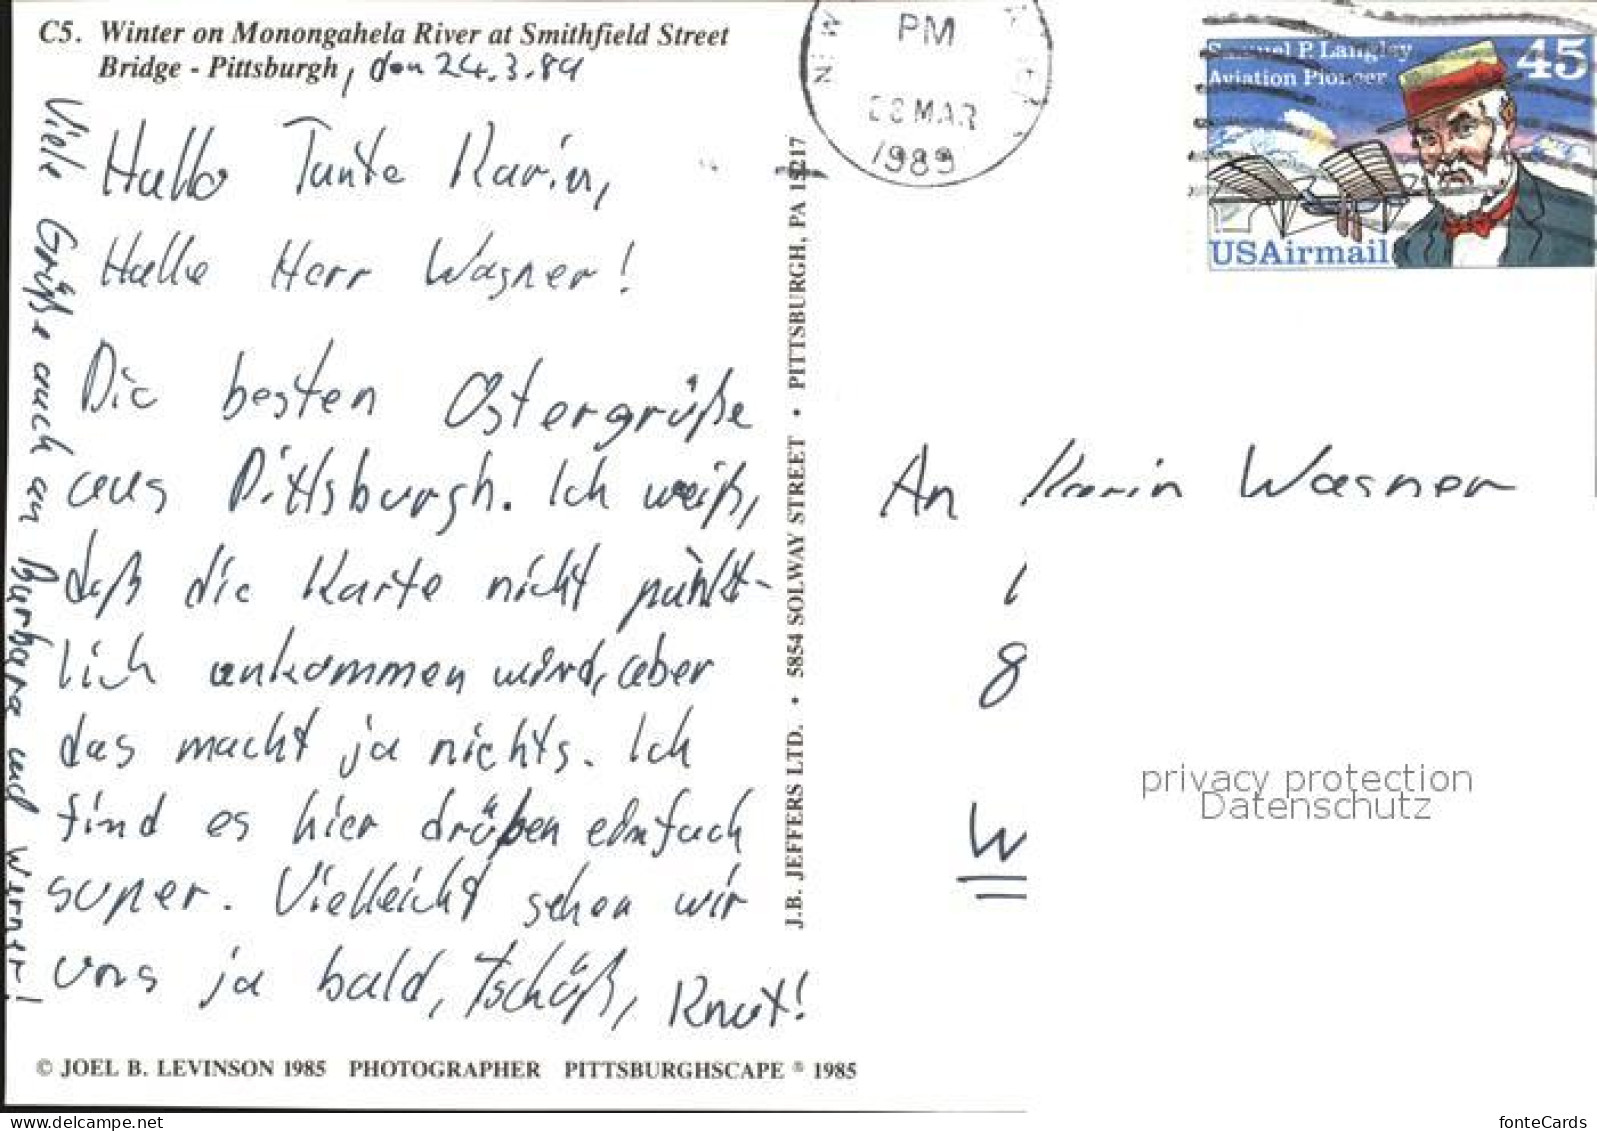 C5. Winter on Monongahela River at Smithfield Street
Bridge - Pittsburgh, den 24.3.89
Hallo Tante Karin,
Hallo Herr Wagner!
Die besten Ostergrüße
aus Pittsburgh. Ich weiß,
daß die Karte nicht pünkt-
lich ankommen wird, aber
das macht ja nichts. Ich
find es hier drüben einfach
super. Vielleicht sehen wir
uns ja bald, Tschüß, Knut!
Viele Grüße auch an Barbara und Werner!
© JOEL B. LEVINSON 1985 PHOTOGRAPHER PITTSBURGHSCAPE ® 1985
J.B. JEFFERS LTD. • 5854 SOLWAY STREET • PITTSBURGH, PA 15217
NEW
PM
28 MAR
1989
Samuel P. Langley
Aviation Pioneer
45
USAirmail
An Karin Wagner
1
8
W
privacy protection
Datenschutz
www.delcampe.net
fonteCards